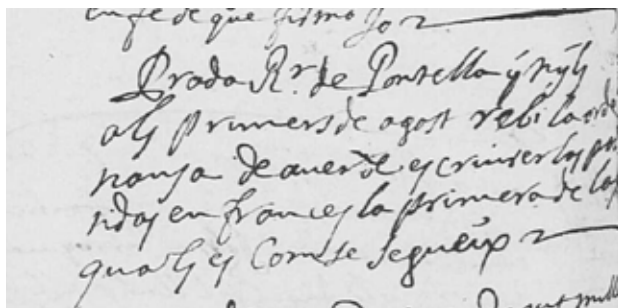 en fe de que firmo Jo
Prada Rr. de Pontella y Nyls
als primers de agost rebi la orde
nansa de aver de escriurer las par
tidas en frances la primera de las
quals es Com se segueix